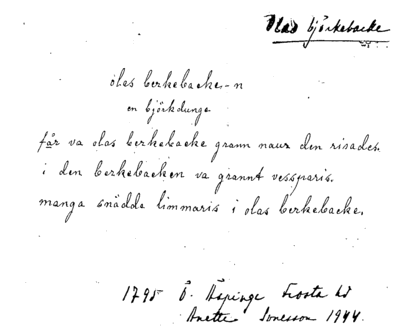 Olas björkebacke
olas berkebacke-n
en björkdunge
får va olas berkebacke grann naur den risades.
i den berkebacken va grannt vessparis.
manga snädde limmaris i olas berkebacke.
1795 Ö. Äspinge Frosta hd
Anette Jonesson 1944.